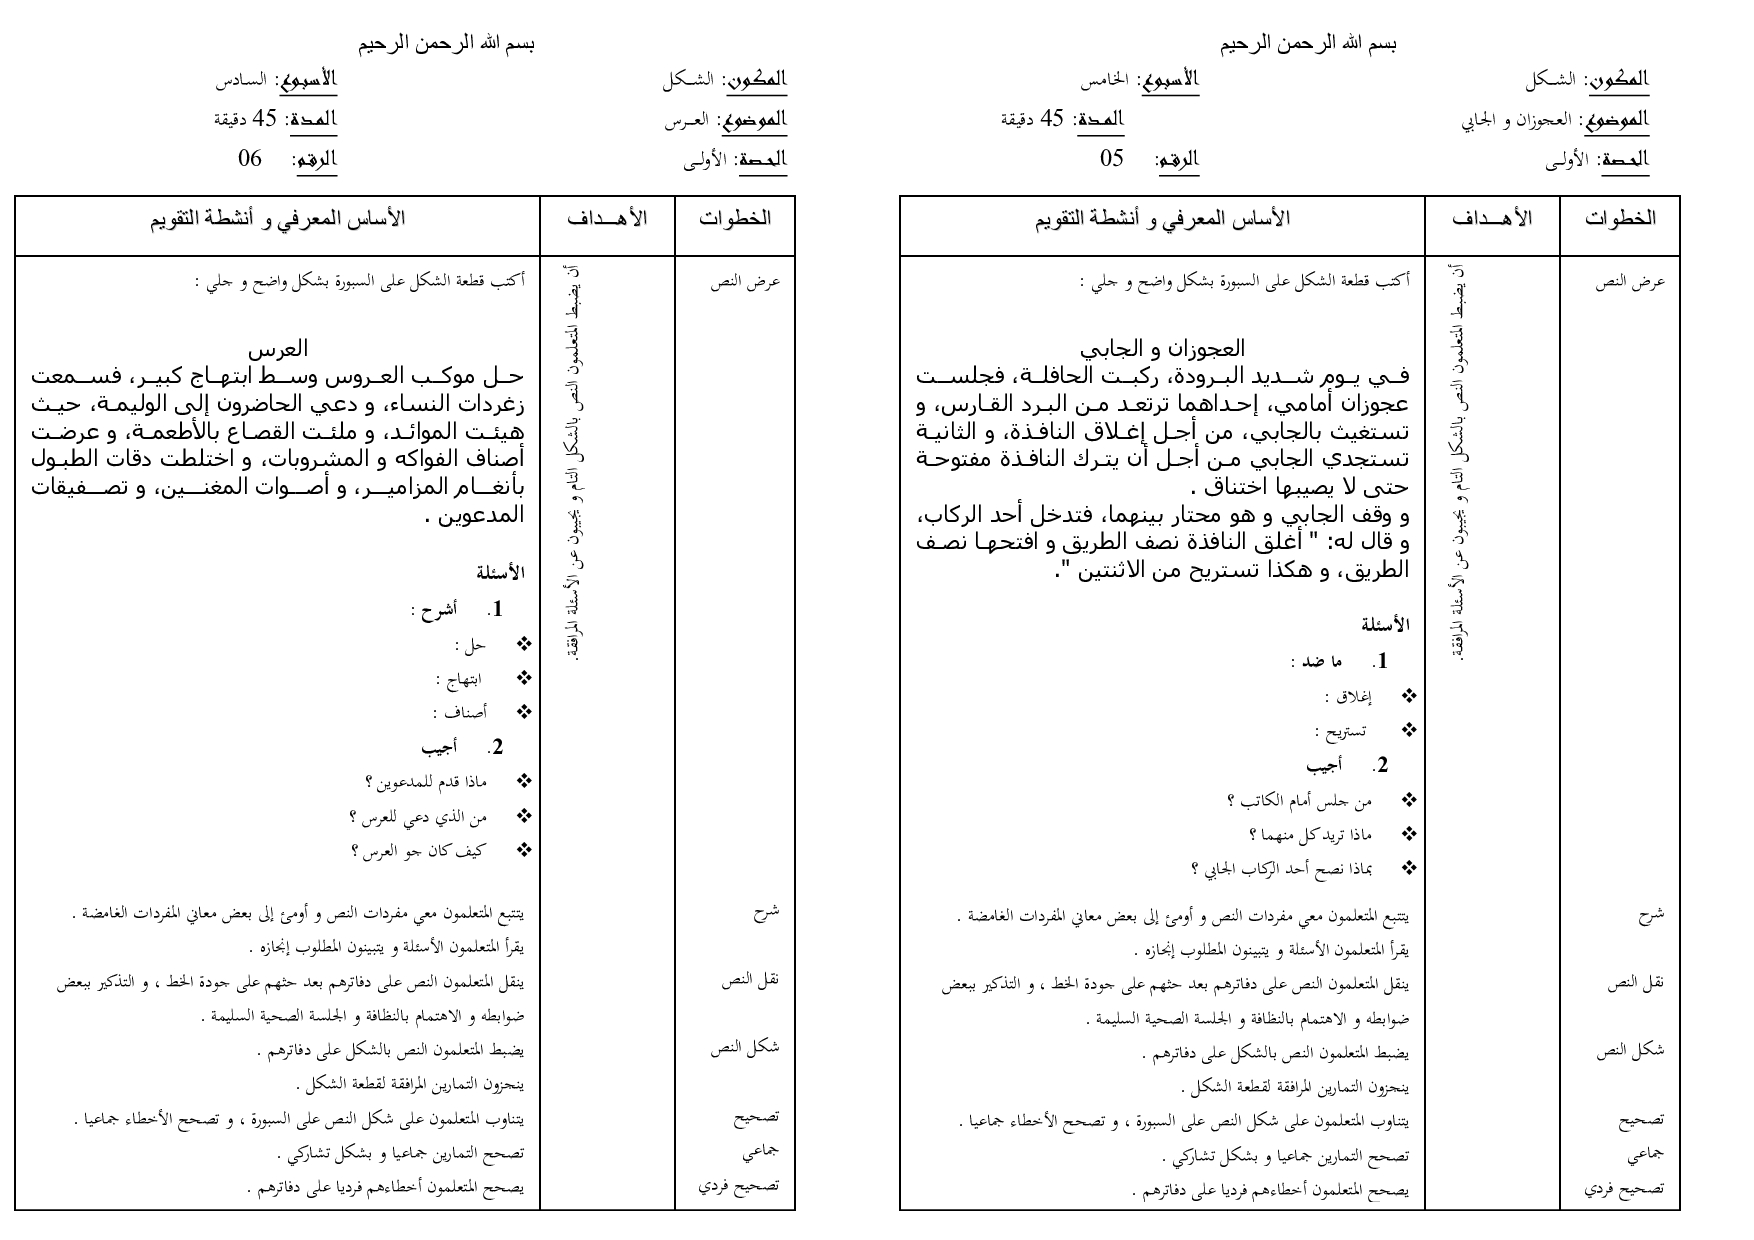 بسم الله الرحمن الرحيم
المكون: الشـكل
الأسبوع: الخامس
الموضوع: العجوزان و الجابي
المـدة: 45 دقيقة
الحصة: الأولـى
الرقـم: 05
الخطوات
الأهــداف
الأساس المعرفي و أنشطة التقويم
عرض النص
أن يضبط المتعلمون النص بالشكل التام و يجيبون عن الأسئلة المرافقة.
أكتب قطعة الشكل على السبورة بشكل واضح و جلي :
العجوزان و الجابي
فـي يـوم شـديد البـرودة، ركبـت الحافلـة، فجلسـت
عجوزان أمامي، إحـداهما ترتعـد مـن البـرد القـارس، و
تستغيث بالجابي، من أجـل إغـلاق النافـذة، و الثانيـة
تستجدي الجابي مـن أجـل أن يتـرك النافـذة مفتوحـة
حتى لا يصيبها اختناق .
و وقف الجابي و هو محتار بينهما، فتدخل أحد الركاب،
و قال له: " أغلق النافذة نصف الطريق و افتحهـا نصـف
الطريق، و هكذا تستريح من الاثنتين ".
الأسئلة
1. ما ضد :
❖ إغلاق :
❖ تستريح :
2. أجيب
❖ من جلس أمام الكاتب ؟
❖ ماذا تريد كل منهما ؟
❖ بماذا نصح أحد الركاب الجابي ؟
شرح
يتتبع المتعلمون معي مفردات النص و أومئ إلى بعض معاني المفردات الغامضة .
يقرأ المتعلمون الأسئلة و يتبينون المطلوب إنجازه .
نقل النص
ينقل المتعلمون النص على دفاترهم بعد حثهم على جودة الخط ، و التذكير ببعض
ضوابطه و الاهتمام بالنظافة و الجلسة الصحية السليمة .
شكل النص
يضبط المتعلمون النص بالشكل على دفاترهم .
ينجزون التمارين المرافقة لقطعة الشكل .
تصحيح
يتناوب المتعلمون على شكل النص على السبورة ، و تصحح الأخطاء جماعيا .
جماعي
تصحح التمارين جماعيا و بشكل تشاركي .
تصحيح فردي
يصحح المتعلمون أخطاءهم فرديا على دفاترهم .
بسم الله الرحمن الرحيم
المكون: الشـكل
الأسبوع: السـادس
الموضوع: العـرس
المـدة: 45 دقيقة
الحصة: الأولـى
الرقـم: 06
الخطوات
الأهــداف
الأساس المعرفي و أنشطة التقويم
عرض النص
أن يضبط المتعلمون النص بالشكل التام و يجيبون عن الأسئلة المرافقة.
أكتب قطعة الشكل على السبورة بشكل واضح و جلي :
العرس
حـل موكـب العـروس وسـط ابتهـاج كبيـر، فسـمعت
زغردات النساء، و دعي الحاضرون إلى الوليمة، حيـث
هيئت الموائـد، و ملئـت القصـاع بالأطعمـة، و عرضـت
أصناف الفواكه و المشروبات، و اختلطت دقات الطبـول
بأنغـام المزاميـر، و أصـوات المغنـين، و تصـفيقات
المدعوين .
الأسئلة
1. أشرح :
❖ حل :
❖ ابتهاج :
❖ أصناف :
2. أجيب
❖ ماذا قدم للمدعوين ؟
❖ من الذي دعي للعرس ؟
❖ كيف كان جو العرس ؟
شرح
يتتبع المتعلمون معي مفردات النص و أومئ إلى بعض معاني المفردات الغامضة .
يقرأ المتعلمون الأسئلة و يتبينون المطلوب إنجازه .
نقل النص
ينقل المتعلمون النص على دفاترهم بعد حثهم على جودة الخط ، و التذكير ببعض
ضوابطه و الاهتمام بالنظافة و الجلسة الصحية السليمة .
شكل النص
يضبط المتعلمون النص بالشكل على دفاترهم .
ينجزون التمارين المرافقة لقطعة الشكل .
تصحيح
يتناوب المتعلمون على شكل النص على السبورة ، و تصحح الأخطاء جماعيا .
جماعي
تصحح التمارين جماعيا و بشكل تشاركي .
تصحيح فردي
يصحح المتعلمون أخطاءهم فرديا على دفاترهم .